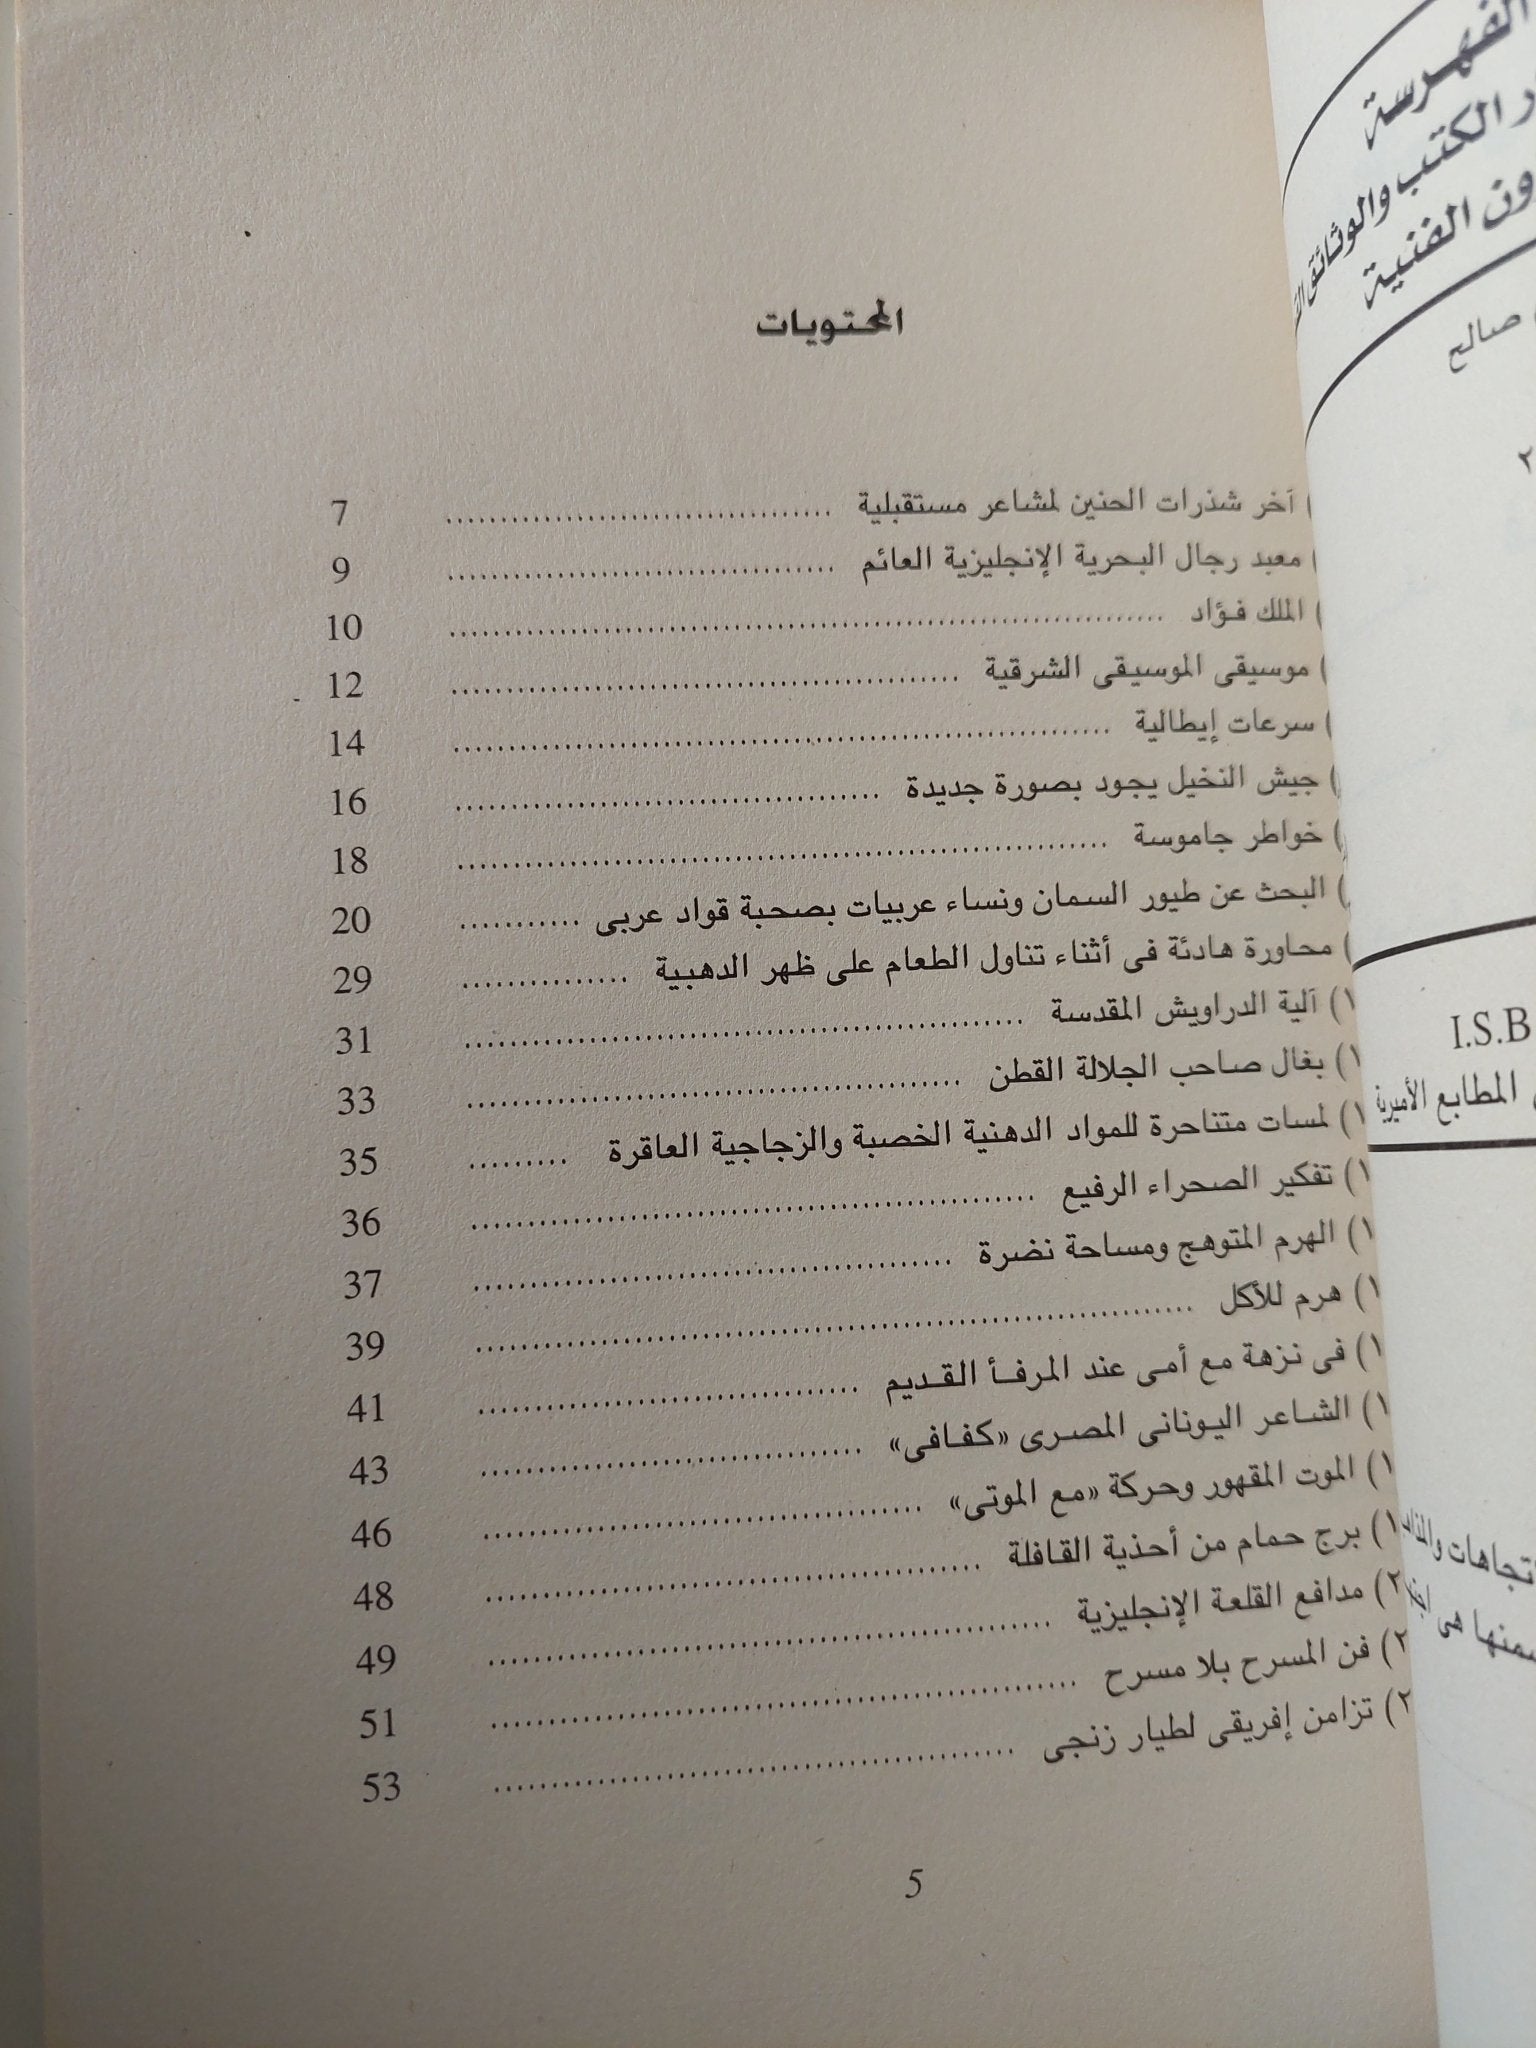 المحتويات
) آخر شذرات الحنين لمشاعر مستقبلية ........ 7
) معبد رجال البحرية الإنجليزية العائم ........ 9
) الملك فؤاد ........ 10
) موسيقى الموسيقى الشرقية ........ 12
) سرعات إيطالية ........ 14
) جيش النخيل يجود بصورة جديدة ........ 16
) خواطر جاموسة ........ 18
) البحث عن طيور السمان ونساء عربيات بصحبة قواد عربى ........ 20
) محاورة هادئة فى أثناء تناول الطعام على ظهر الدهبية ........ 29
١) آلية الدراويش المقدسة ........ 31
١) بغال صاحب الجلالة القطن ........ 33
١) لمسات متناحرة للمواد الدهنية الخصبة والزجاجية العاقرة ........ 35
١) تفكير الصحراء الرفيع ........ 36
١) الهرم المتوهج ومساحة نضرة ........ 37
١) هرم للأكل ........ 39
١) فى نزهة مع أمى عند المرفأ القديم ........ 41
١) الشاعر اليونانى المصرى «كفافى» ........ 43
١) الموت المقهور وحركة «مع الموتى» ........ 46
١) برج حمام من أحذية القافلة ........ 48
٢) مدافع القلعة الإنجليزية ........ 49
٢) فن المسرح بلا مسرح ........ 51
٢) تزامن إفريقى لطيار زنجى ........ 53
5
الفهرسة
ر الكتب والوثائق
ون الفنية
صالح
٢
I.S.B
المطابع الأميرية
تجاهات
هى